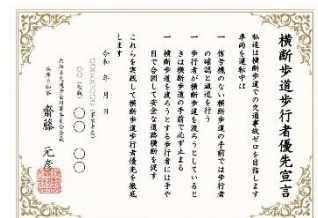 横断歩道歩行者優先宣言
私達は横断歩道での交通事故ゼロを目指します
車両を運転中は
一 信号機のない横断歩道の手前では歩行者
の確認と減速を行う
一 歩行者が横断歩道を渡ろうとしていると
きは横断歩道の手前で必ず止まる
一 横断歩道を渡ろうとする歩行者には手や
目で合図して安全な道路横断を促す
これらを実践して横断歩道歩行者優先を徹底
します
令和 年 月 日
〇〇 〇〇
兵庫県知事 齋藤 元彦